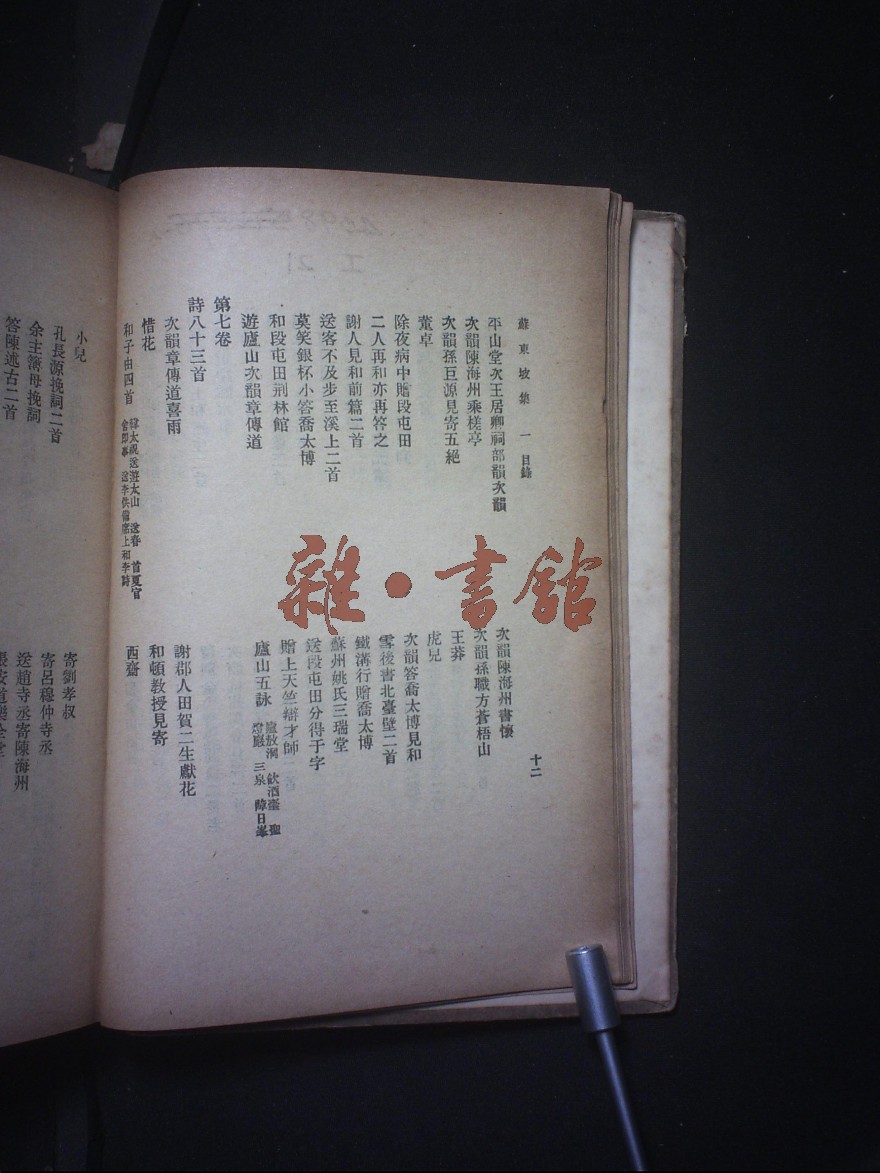 蘇東坡集 一 目錄
十二
平山堂次王居卿祠部韻次韻
次韻陳海州書懷
次韻陳海州乘槎亭
次韻孫職方蒼梧山
次韻孫巨源見寄五絕
王莽
董卓
虎兒
除夜病中贈段屯田
次韻答喬太博見和
二人再和亦再答之
雪後書北臺壁二首
謝人見和前篇二首
鐵溝行贈喬太博
送客不及步至溪上二首
蘇州姚氏三瑞堂
莫笑銀杯小答喬太博
送段屯田分得于字
和段屯田荊林館
贈上天竺辯才師
遊廬山次韻章傳道
廬山五詠 廬敖洞 飲酒臺 聖燈巖 三泉 障日峯
第七卷
詩八十三首
次韻章傳道喜雨
謝郡人田賀二生獻花
惜花
和頓教授見寄
和子由四首 韓太祝送遊太山 送春 首夏官舍卽事 送李供備席上和李詩
西齋
小兒
寄劉孝叔
孔長源挽詞二首
寄呂穆仲寺丞
余主簿母挽詞
送趙寺丞寄陳海州
答陳述古二首
張安道樂全堂
雜·書館